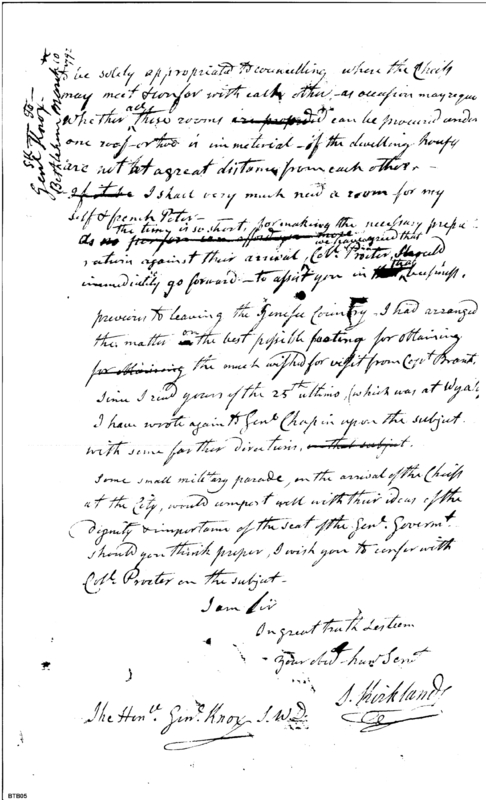 S. K. To
Genl Knox
Bethlehem March 10
1792
be solely appropriated to councelling where the Chiefs
may meet & confer with each other, as occasion may requ
whether these rooms are can be procured under
one roof or two is immeterial if the dwelling houses
are not at a great distance from each other.
I shall very much need a room for my
self & french Peter
the time is so short, for making the necessary prepa
we have agreed that
ration against their arrival, Colo. Procter, should
immediately go forward to assist you in that business.
previous to leaving the Genesee Country I had arranged
the matter on the best possible footing for obtaining
for obtaining the much wished for visit from Capt Brant.
Since I recd yours of the 25th ultimo, (which was at Wya
I have wrote again to Genl Chapin upon the subject
with some farther directions, on that subject.
Some small military parade, on the arrival of the Chiefs
at the City, would comport well with their ideas of the
dignity & importance of the seat of the Genl. Governt.
should you think proper, I wish you to confer with
Colo. Procter on the subject
I am Sir
On great truth & esteem
Your obedt hum Servt
S. Kirkland
The Honle. Genl. Knox S. W. D.
BTB05